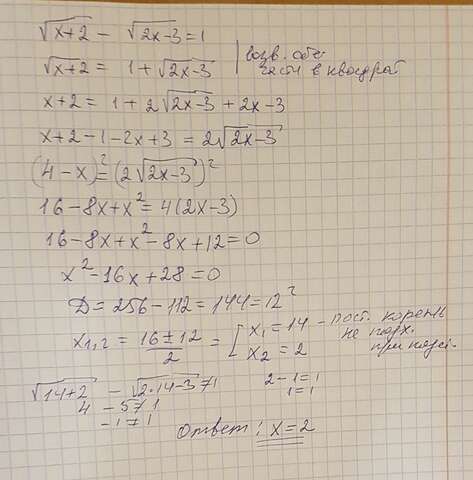 √x+2 - √2x-3 = 1
√x+2 = 1 + √2x-3 | возв. обе части в квадрат
x+2 = 1 + 2√2x-3 + 2x-3
x+2-1-2x+3 = 2√2x-3
(4-x)² = (2√2x-3)²
16-8x+x² = 4(2x-3)
16-8x+x²-8x+12=0
x²-16x+28=0
D=256-112=144=12²
x₁,₂ = (16±12)/2 = [ x₁=14 - пост. корень не подх.
x₂=2
√14+2 - √2·14-3 ≠ 1
4 - 5 ≠ 1
-1 ≠ 1
2-1=1
1=1
Ответ: x=2